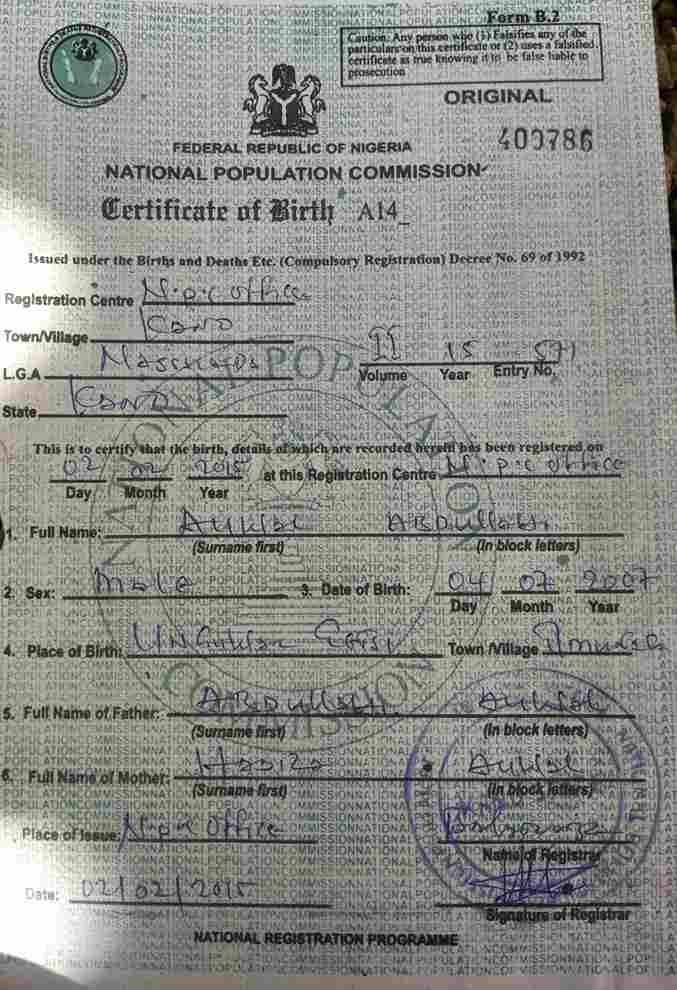 Form B.2
Caution: Any person who (1) Falsifies any of the
particulars on this certificate or (2) uses a falsified
certificate as true knowing it to be false liable to
prosecution
ORIGINAL
400786
FEDERAL REPUBLIC OF NIGERIA
NATIONAL POPULATION COMMISSION
Certificate of Birth A14
Issued under the Births and Deaths Etc. (Compulsory Registration) Decree No. 69 of 1992
Registration Centre N.p.c office
Town/Village Kano
L.G.A
Volume Year 15 Entry No.
State Kano
This is to certify that the birth, details of which are recorded herein has been registered on
02 02 2015 at this Registration Centre N.p.c office
Day Month Year
1. Full Name: Abdullahi
(Surname first) (In block letters)
2. Sex: Male 3. Date of Birth: 04 07 2007
Day Month Year
4. Place of Birth: Town/Village
5. Full Name of Father: Abdullahi
(Surname first) (In block letters)
6. Full Name of Mother:
(Surname first) (In block letters)
Place of Issue: N.p.c office
Name of Registrar
Date: 02/02/2015
Signature of Registrar
NATIONAL REGISTRATION PROGRAMME
NATIONAL POPULATION COMMISSION